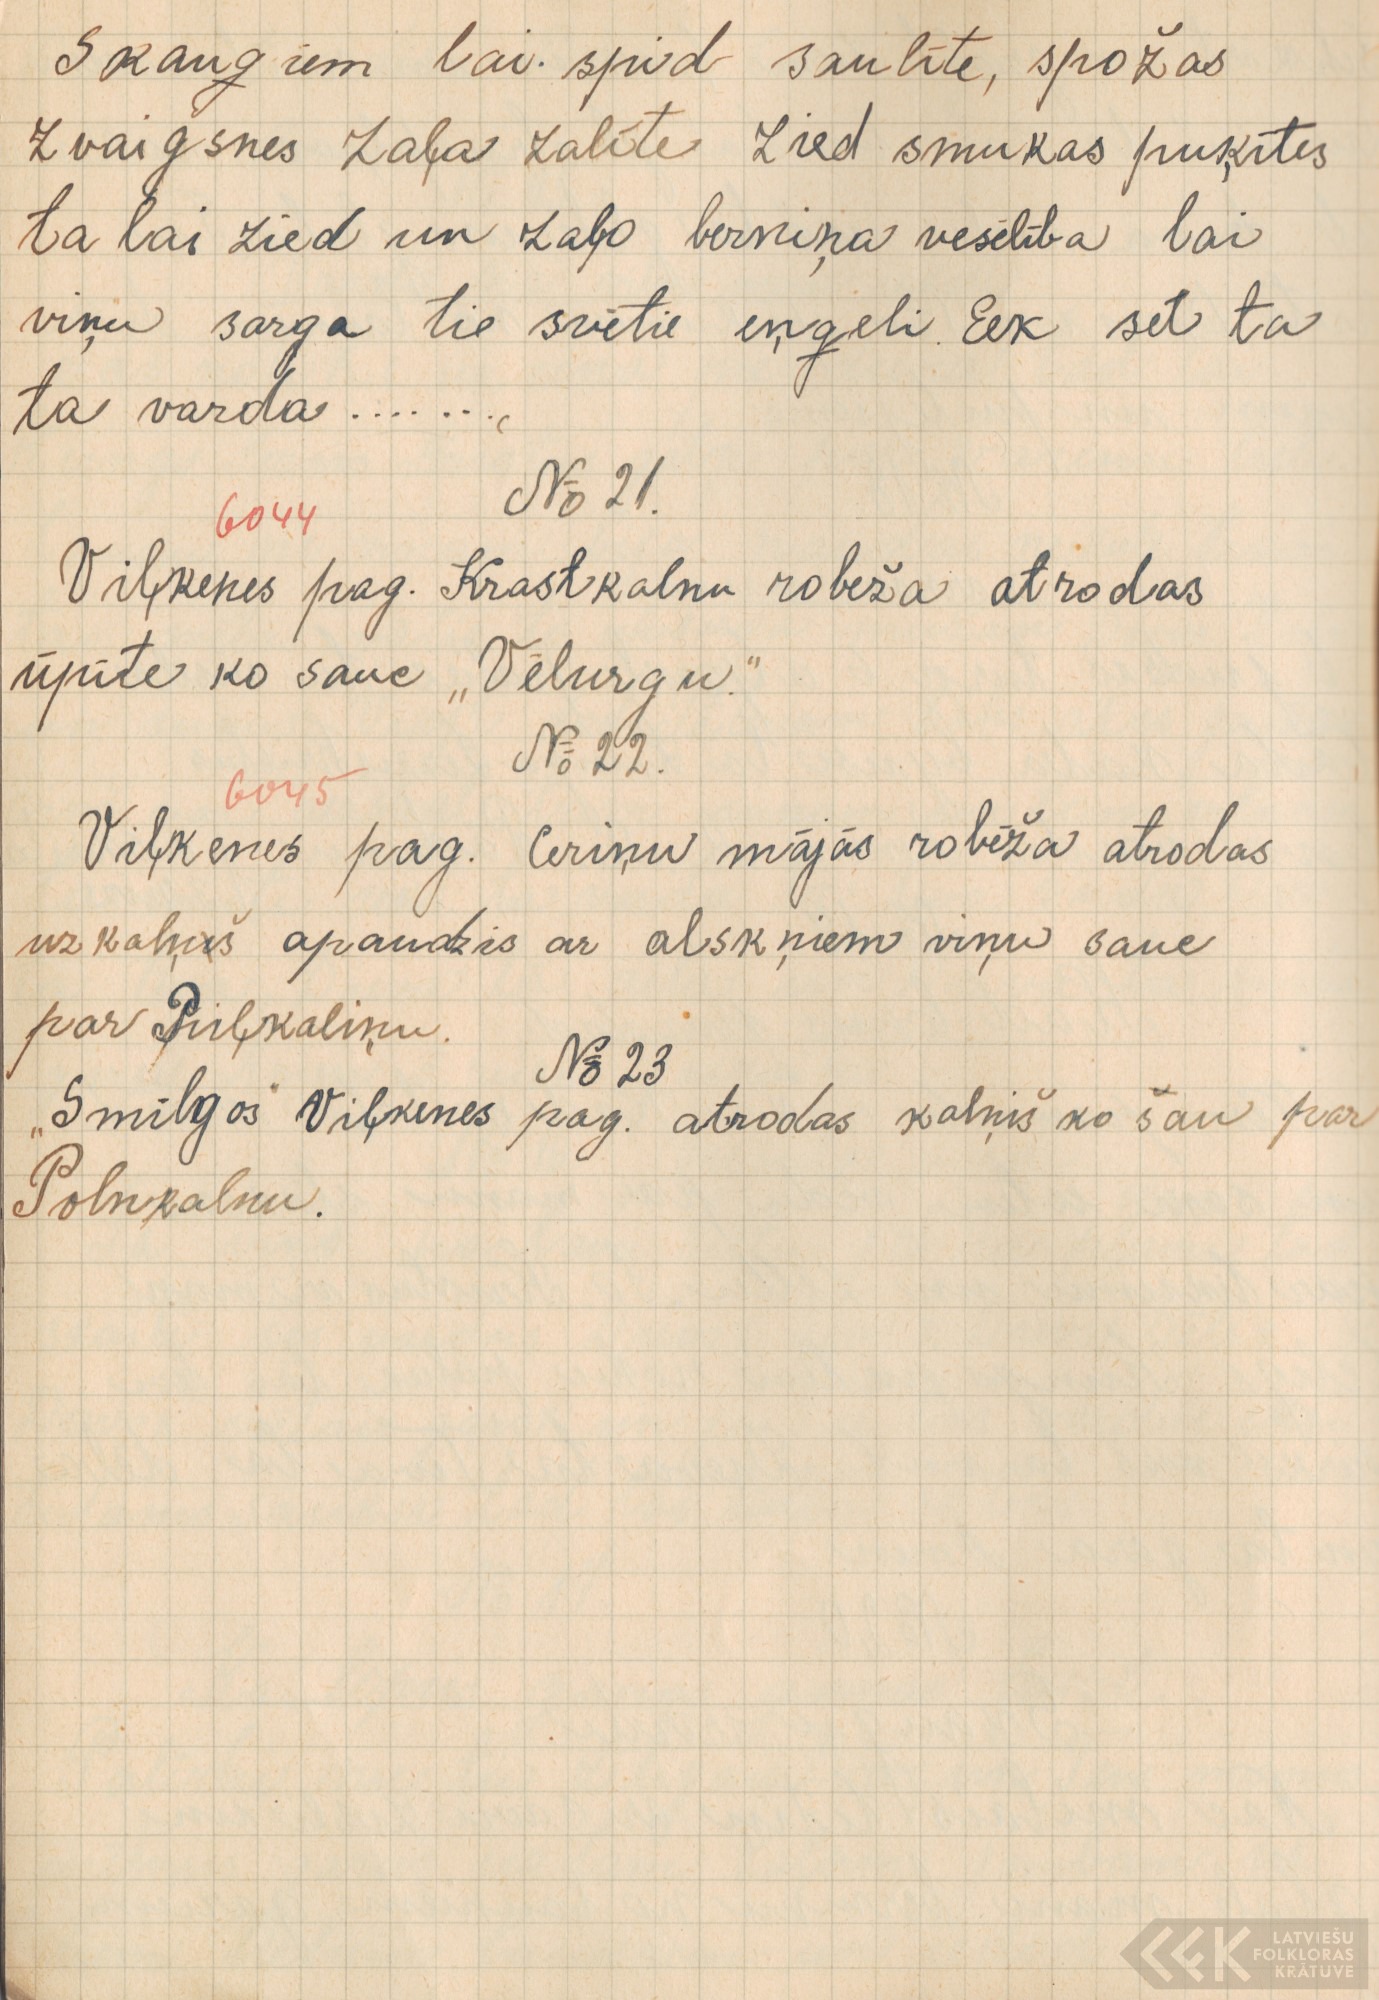 Skaugiem lai spīd saulīte, spožas
zvaigsnes zaļa zalīte zied smukas puķītes
ta lai zied un zaļo berniņa vesēlība lai
viņu sarga tie svētie eņģeli. Eek set ta
ta varda .......
№ 21.
6044
Viļķenes pag. Krastkalnu robeža atrodas
ūpīte ko sauc „Vēlurgu."
№ 22.
6045
Viļķenes pag. Ceriņu mājās robēža atrodas
uzkalņiš apaudzis ar alskņiem viņu sauc
par Piļkaliņu.
№ 23
„Smilgos" Viļķenes pag. atrodas kalņiš ko šau par
Polnkalnu.
LATVIEŠU
FOLKLORAS
KRĀTUVE